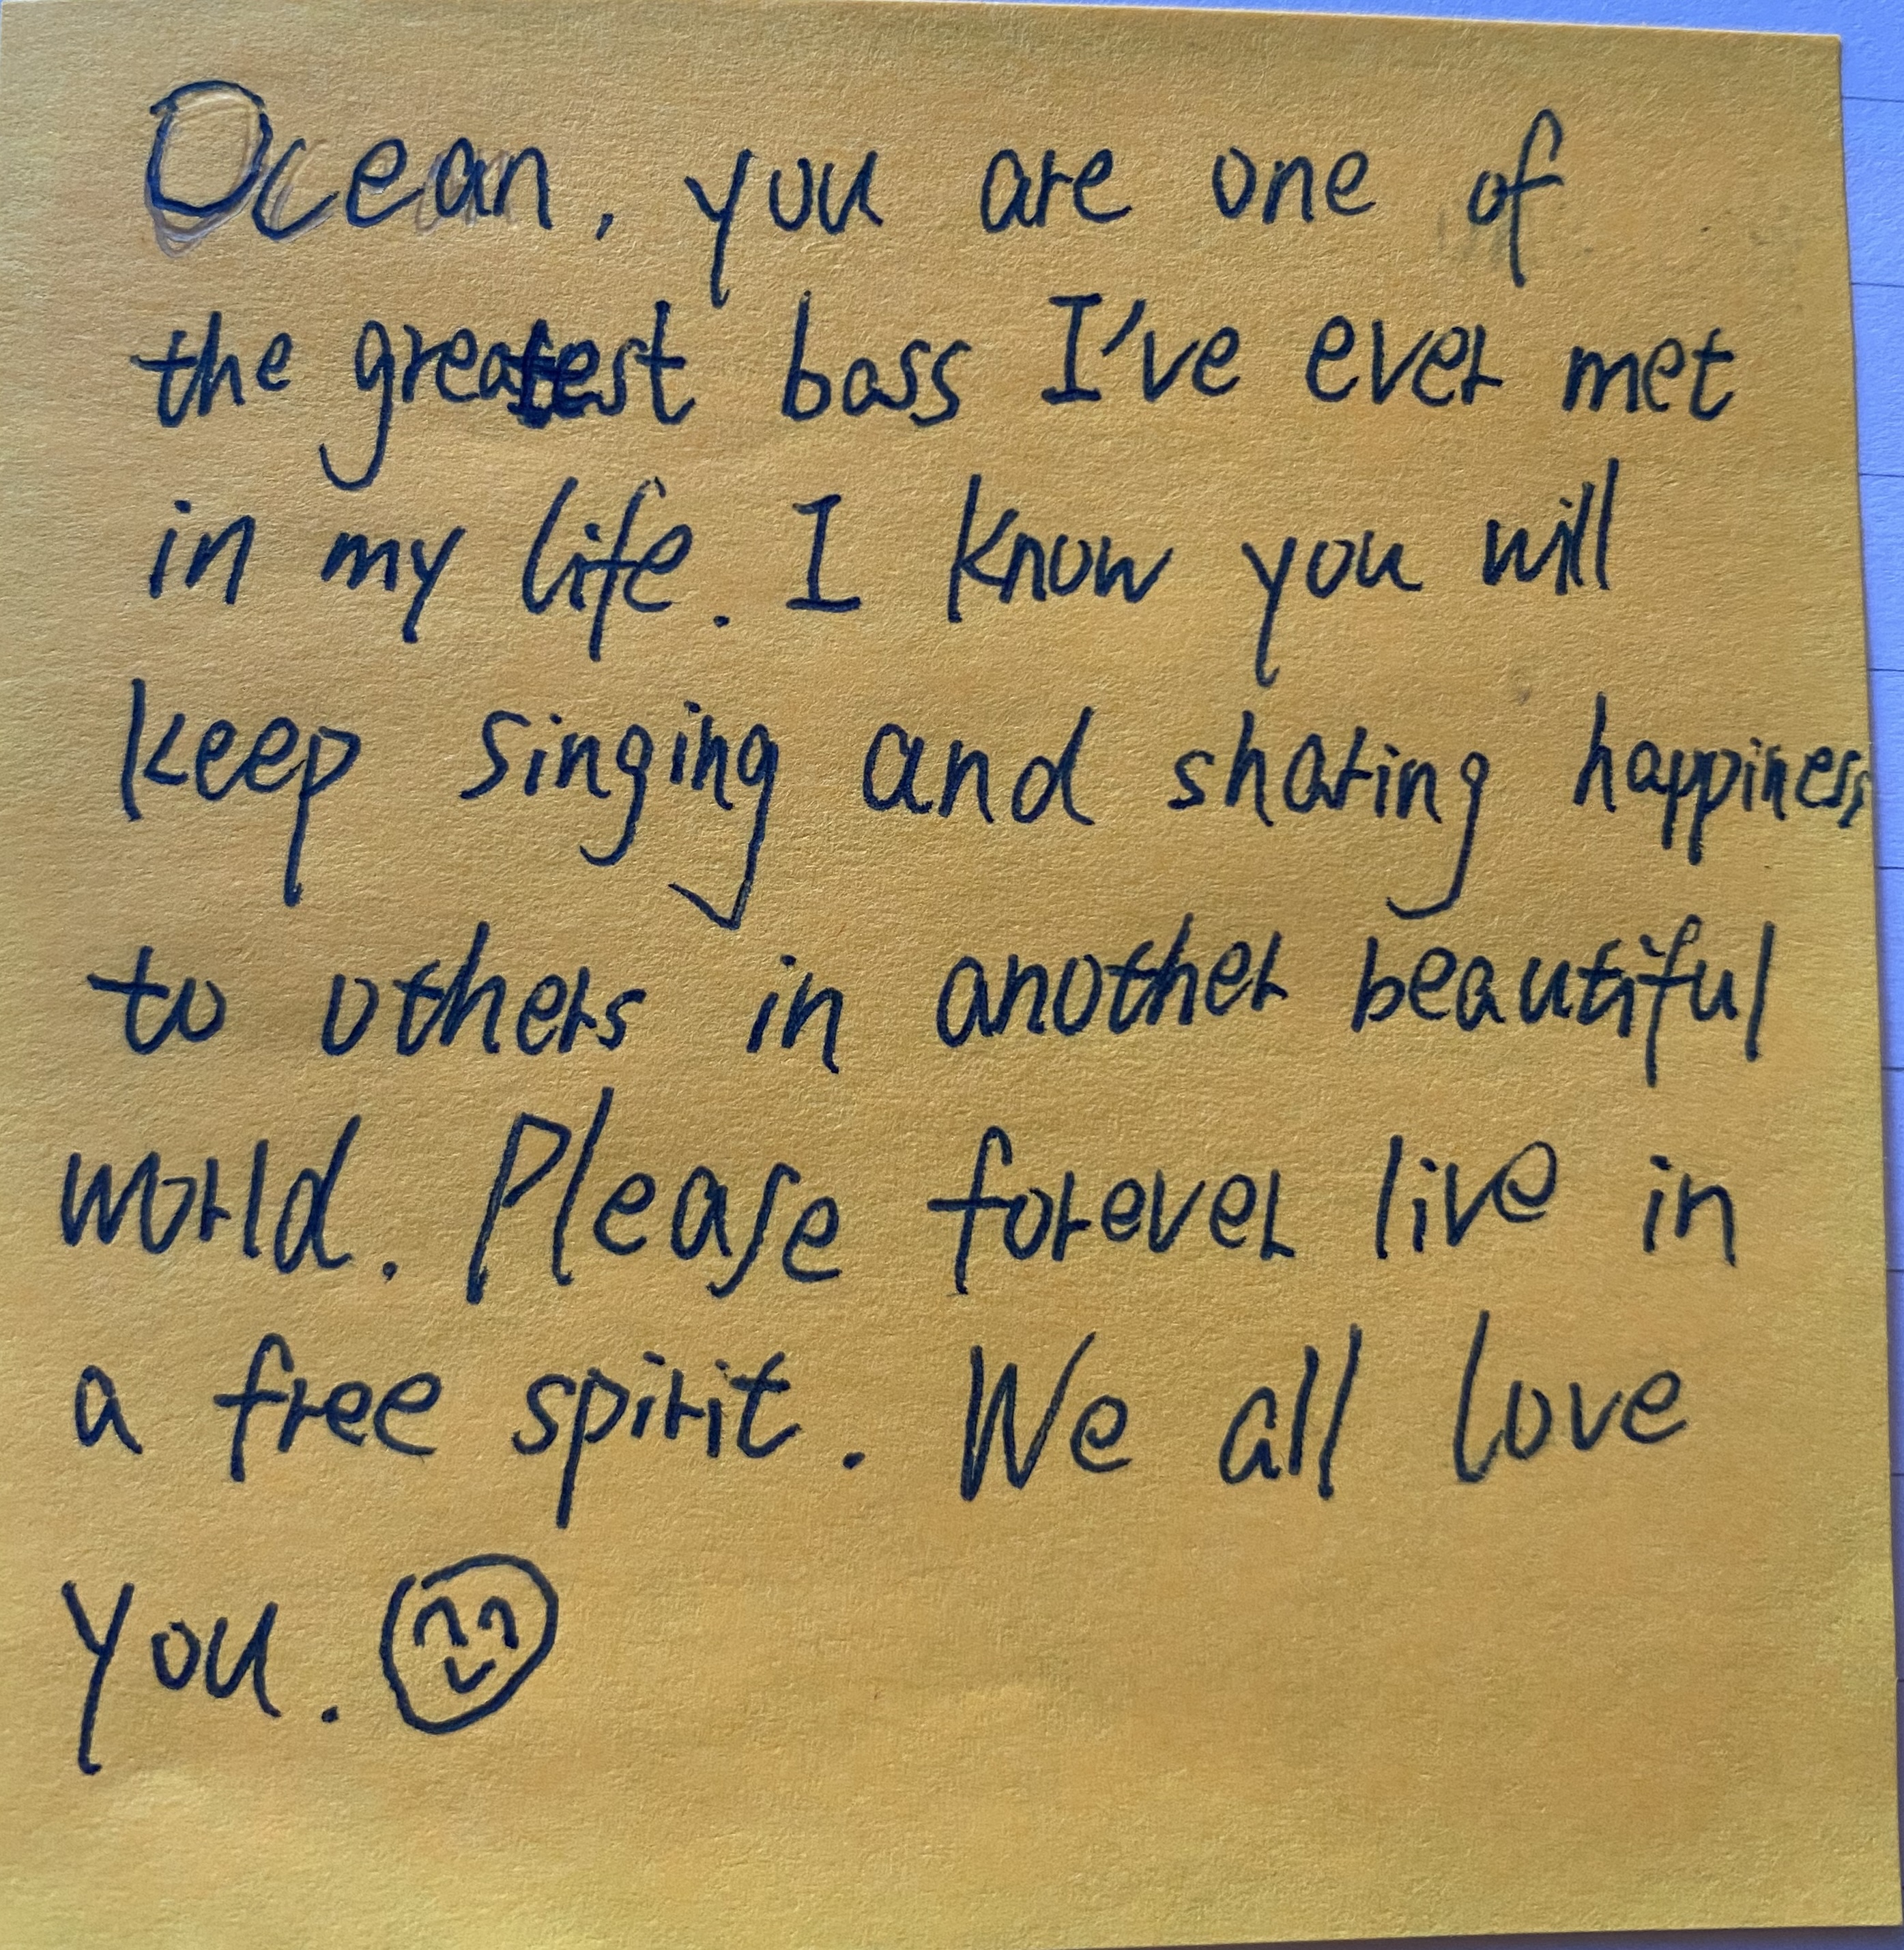 Ocean, you are one of
the greatest bass I've ever met
in my life. I know you will
keep singing and sharing happiness
to others in another beautiful
world. Please forever live in
a free spirit. We all love
you.